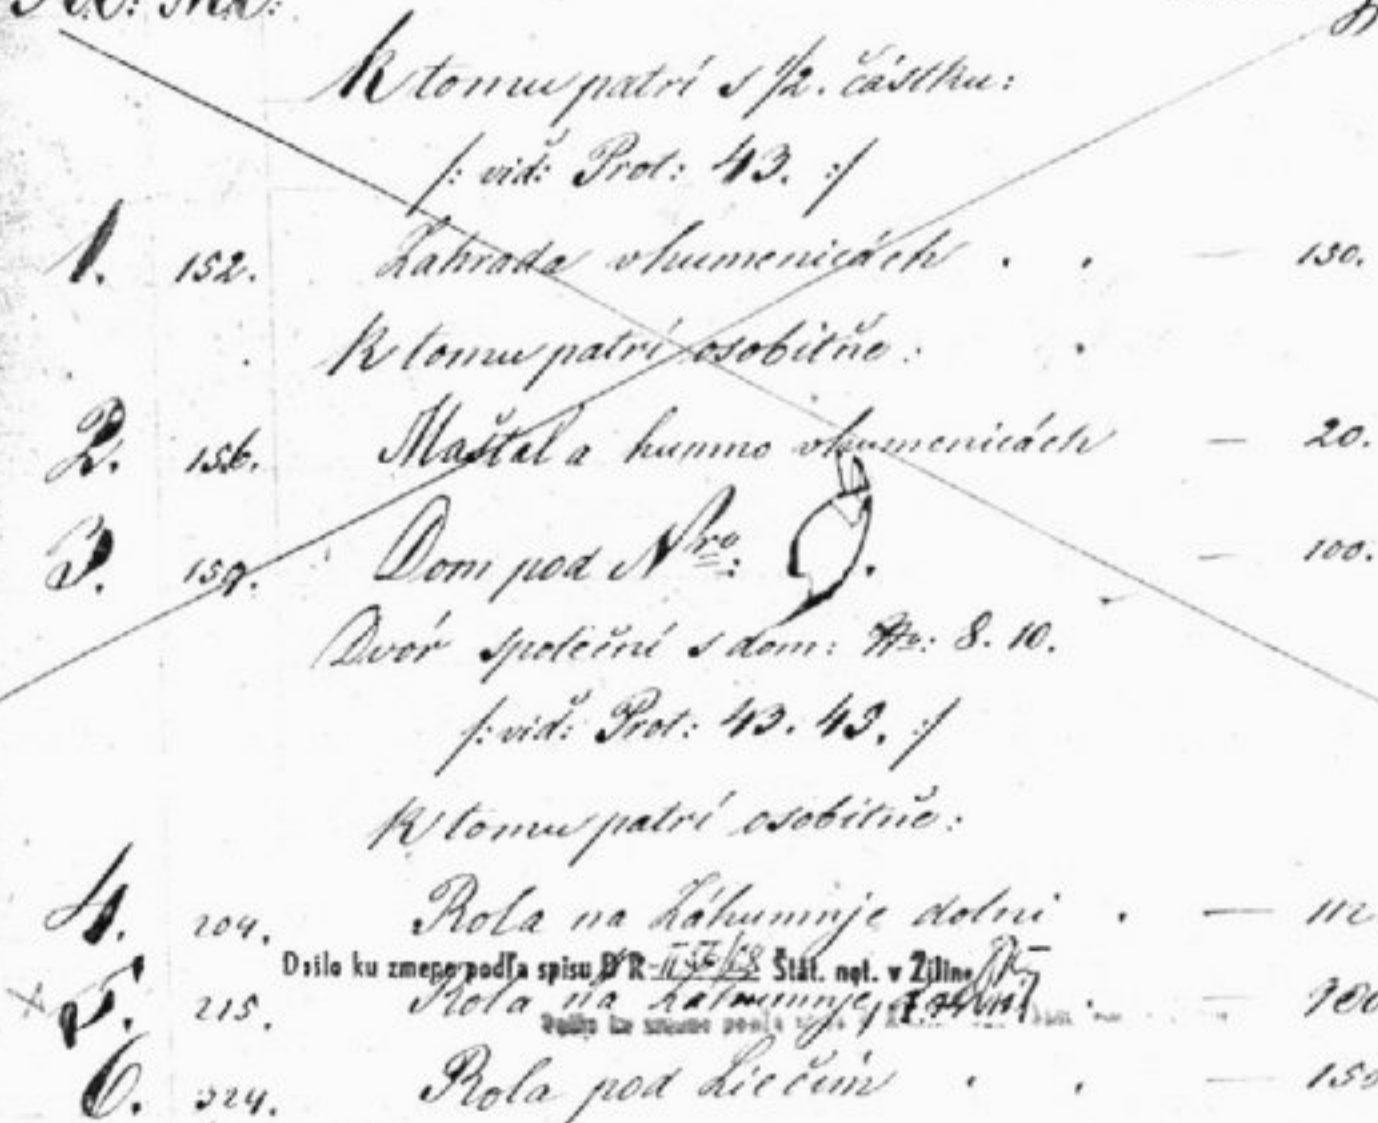 K tomu patrí s 1/2. částku:
/: viď: Prot: 43. :/
1. 152. Zahrada vhumenicách . . — 130.
K tomu patrí osobitňe:
2. 156. Maštal a humno vhumenicách — 20.
3. 159. Dom pod Nro: 9. — 100.
Dvór spolećní s dom: No: 8. 10.
/: viď: Prot: 43. 43. :/
K tomu patrí osobitňe:
4. 204. Rola na Záhumnje dolni . — 112
Došlo ku zmene podľa spisu D R Štát. not. v Žiline
5. 215. Rola na Záhumnje . — 780
6. 324. Rola pod . . — 150